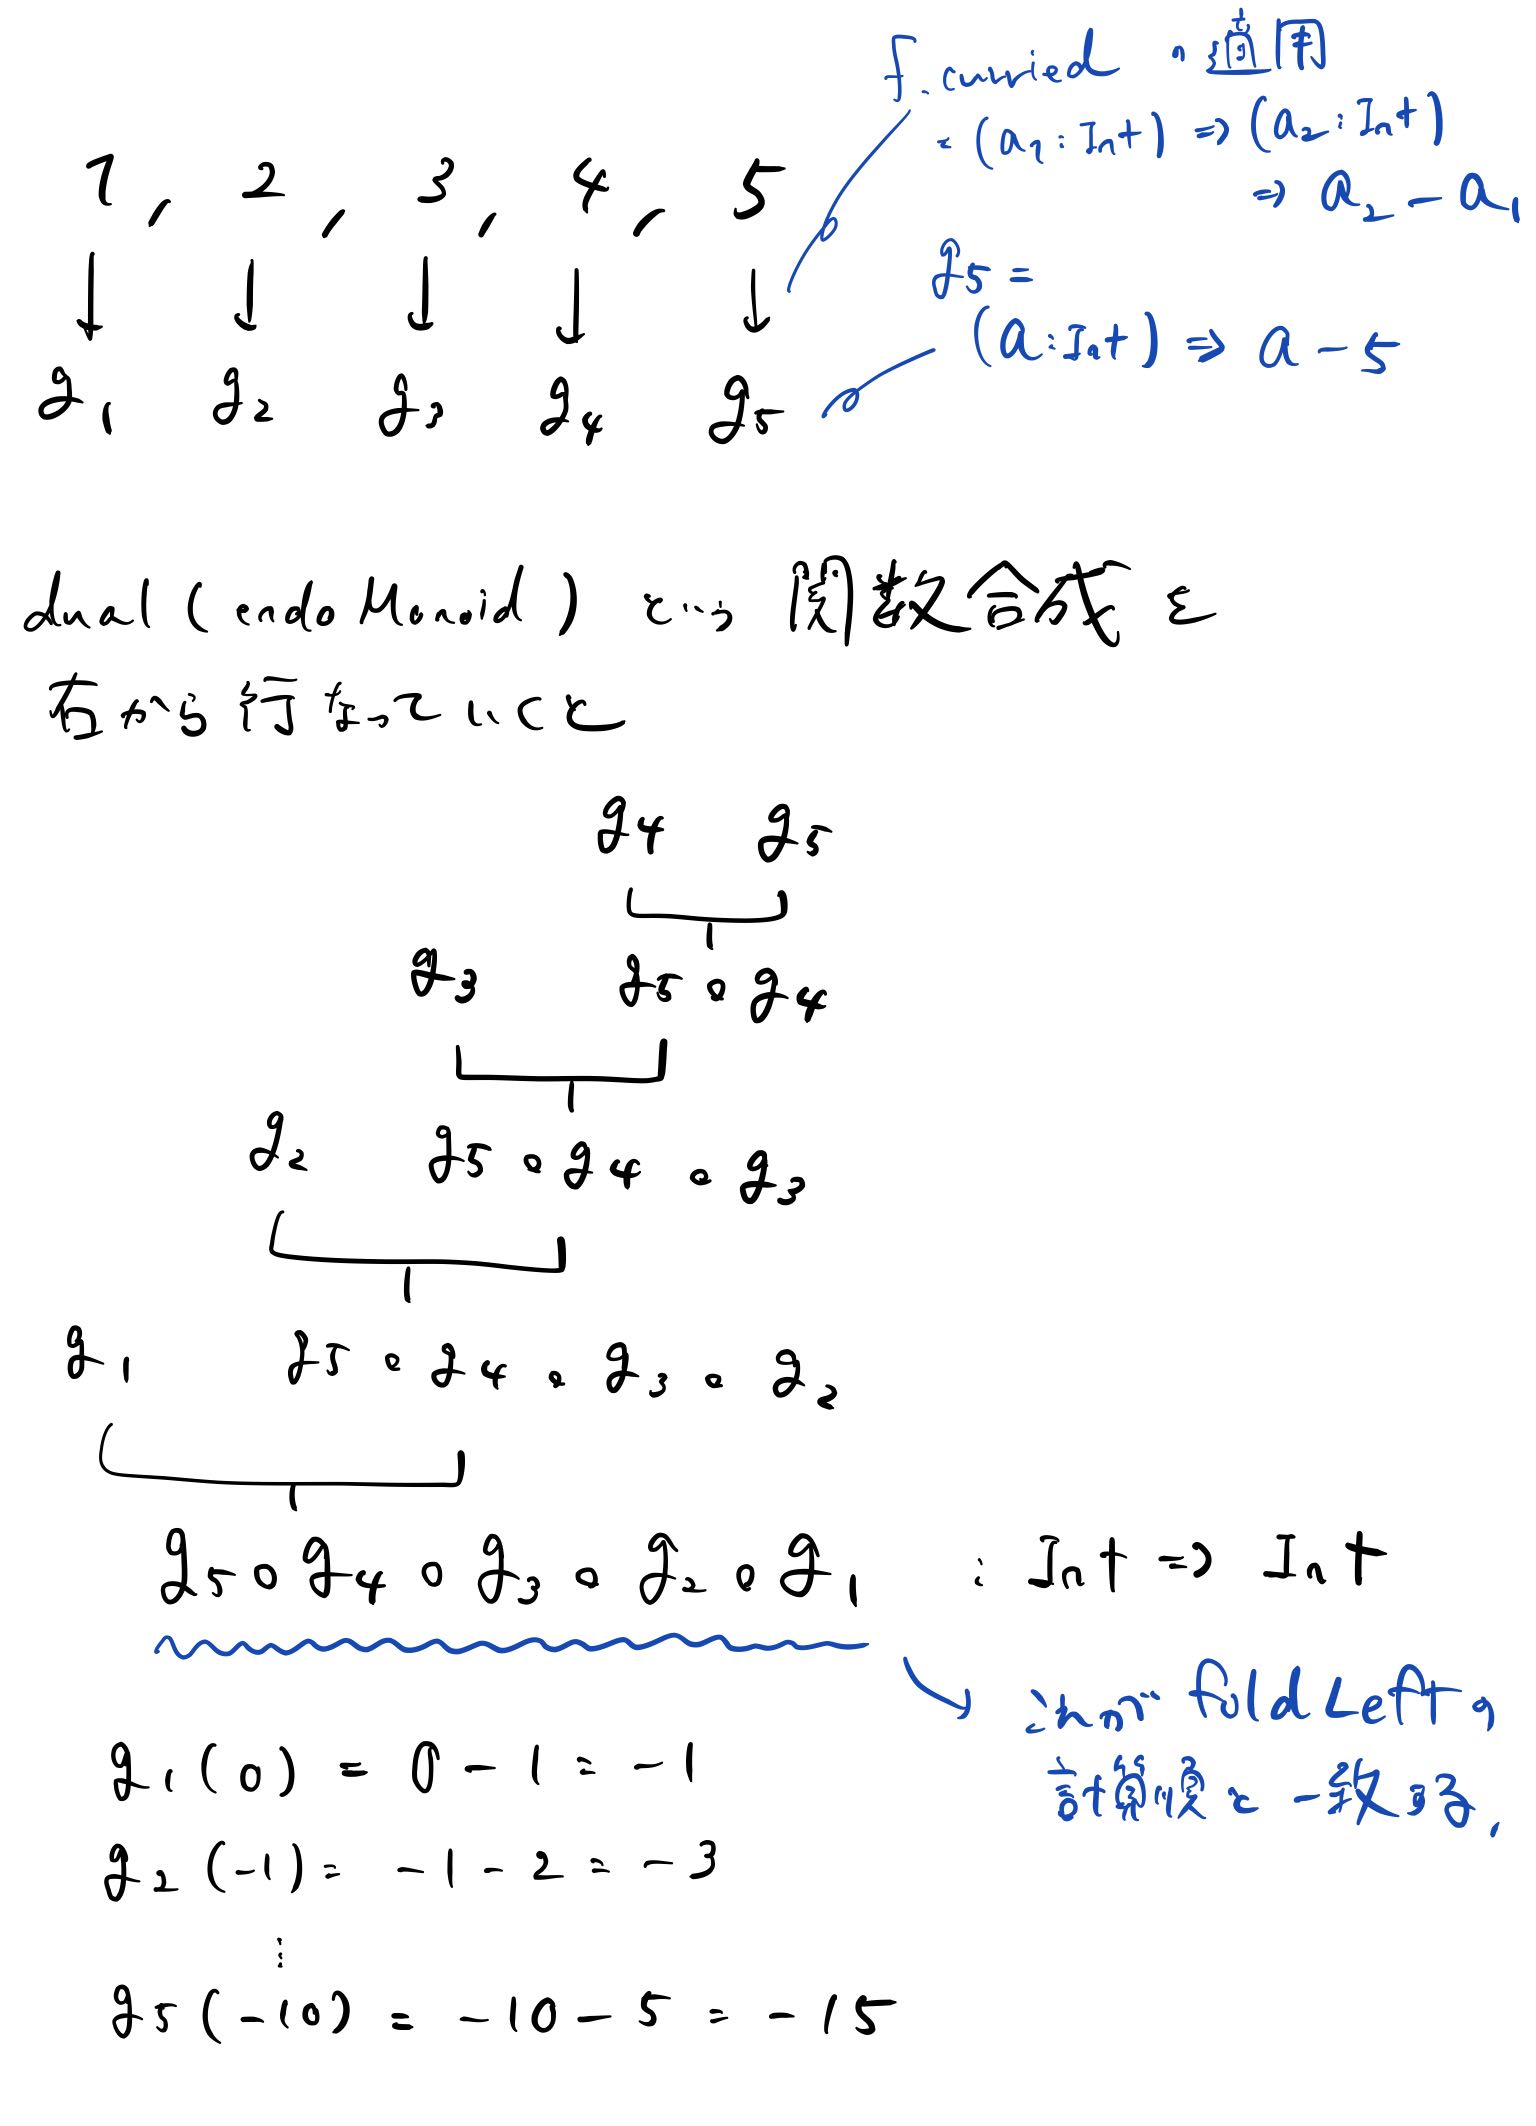 f.curried の適用
= (a1 : Int) => (a2 : Int)
=> a2 - a1
1, 2, 3, 4, 5
↓ ↓ ↓ ↓ ↓
g1 g2 g3 g4 g5
g5 =
(a : Int) => a - 5
dual (endoMonoid) という 関数合成を
右から行なっていくと
g4 g5
g3 g5 ∘ g4
g2 g5 ∘ g4 ∘ g3
g1 g5 ∘ g4 ∘ g3 ∘ g2
g5 ∘ g4 ∘ g3 ∘ g2 ∘ g1 : Int => Int
これが foldLeft の
計算順と一致する.
g1 (0) = 0 - 1 = -1
g2 (-1) = -1 - 2 = -3
⋮
g5 (-10) = -10 - 5 = -15